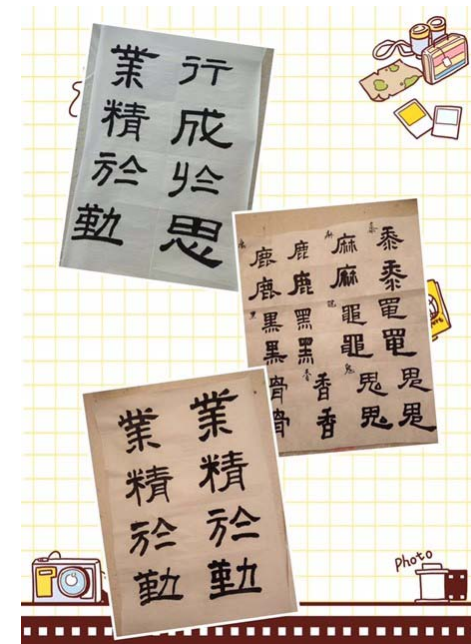 行成於思
業精於勤
黍黍黽黽鬼鬼
麻麻黽黽鬼鬼
鹿鹿黑黑香香
鹿鹿黑黑骨骨
業精於勤
業精於勤
photo